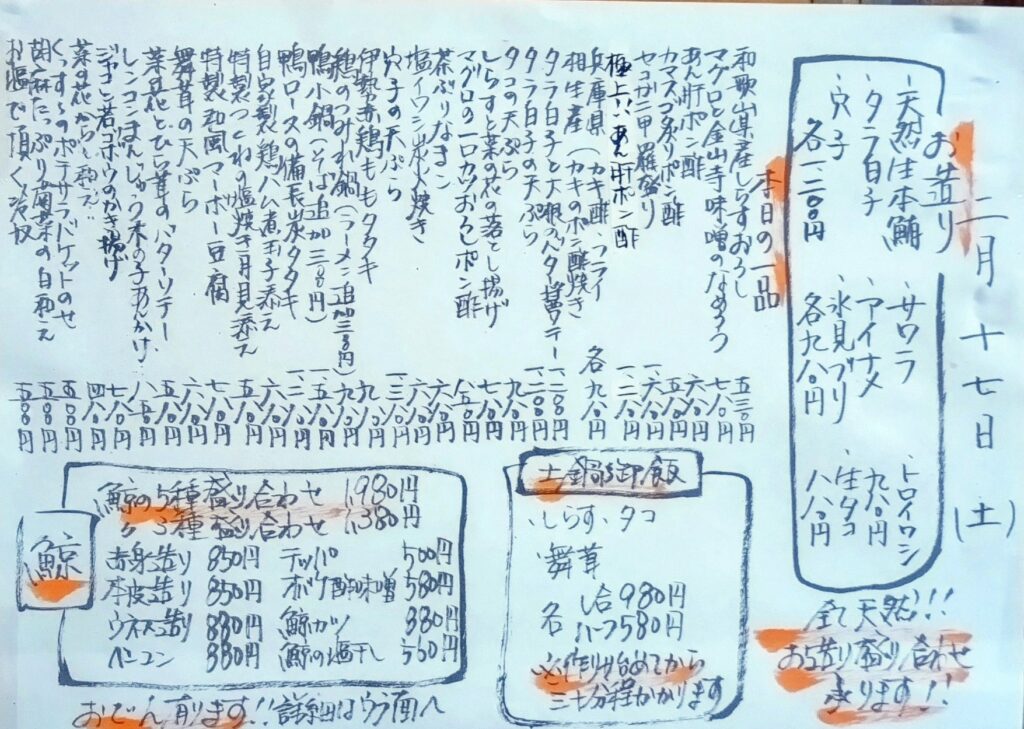 二月十七日(土)
お造り
・天然生本鮪
・タラ白子
・穴子
各一、二〇〇円
・サワラ
・アイナメ
・氷見ブリ
各九八〇円
・トロイワシ
九八〇円
・生タコ
八八〇円
全て天然!!
お造り盛り合わせ
承ります!!
本日の一品
和歌山県産しらすおろし 五三〇円
マグロと金山寺味噌のなめろう 七八〇円
あん肝ポン酢
カマス炙りポン酢
セコガニ甲羅盛り
極上!!あん肝ポン酢
兵庫県 (カキ酢・フライ
相生産 (カキのポン酢焼き
各九八〇円
タラ白子と大根のバター醤油ソテー
タラ白子の天ぷら
タコの天ぷら 九八〇円
しらすと菜の花の落とし揚げ
マグロの一口カツおろしポン酢
茶ぶりなまこ
塩イワシ炭火焼き
穴子の天ぷら
伊勢赤鶏ももタタキ
鶏のつみれ鍋(ラーメン追加三三〇円)
鴨小鍋(そば追加三三〇円)
鴨ロースの備長炭タタキ
自家製鶏ハム煮玉子添え
特製つくねの塩焼き月見添え
特製和風マーボー豆腐
舞茸の天ぷら
菜の花とひら茸のバターソテー
レンコンまんじゅう木の子あんかけ
ジャコと若ゴボウのかき揚げ
菜の花からし和え
くんすものポテサラバケットのせ
胡麻たっぷり菊菜の白和え
お塩で頂く冷奴
鯨
鯨の5種盛り合わせ 1,980円
〃 3種盛り合わせ 1,380円
赤身造り 850円 テッパ 500円
本皮造り 850円 オバケ酢味噌 580円
ウネス造り 880円 鯨カツ 880円
ベーコン 880円 鯨の塩干し 550円
おでん有ります!!詳細はウラ面へ
土鍋御飯
・しらす・タコ
・舞茸
各 1合980円
ハーフ580円
※作り始めてから
三十分程かかります